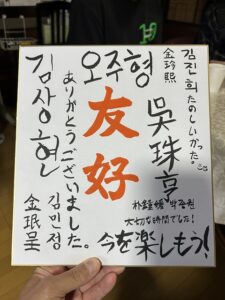 김진희
金玲熙
たのしいかった。
오주형
吳珠亨
友好
김상현
ありがとうございました。
김민정
金珉呈
朴鍾媛 박종원
大切な時間でした!
今を楽しもう!